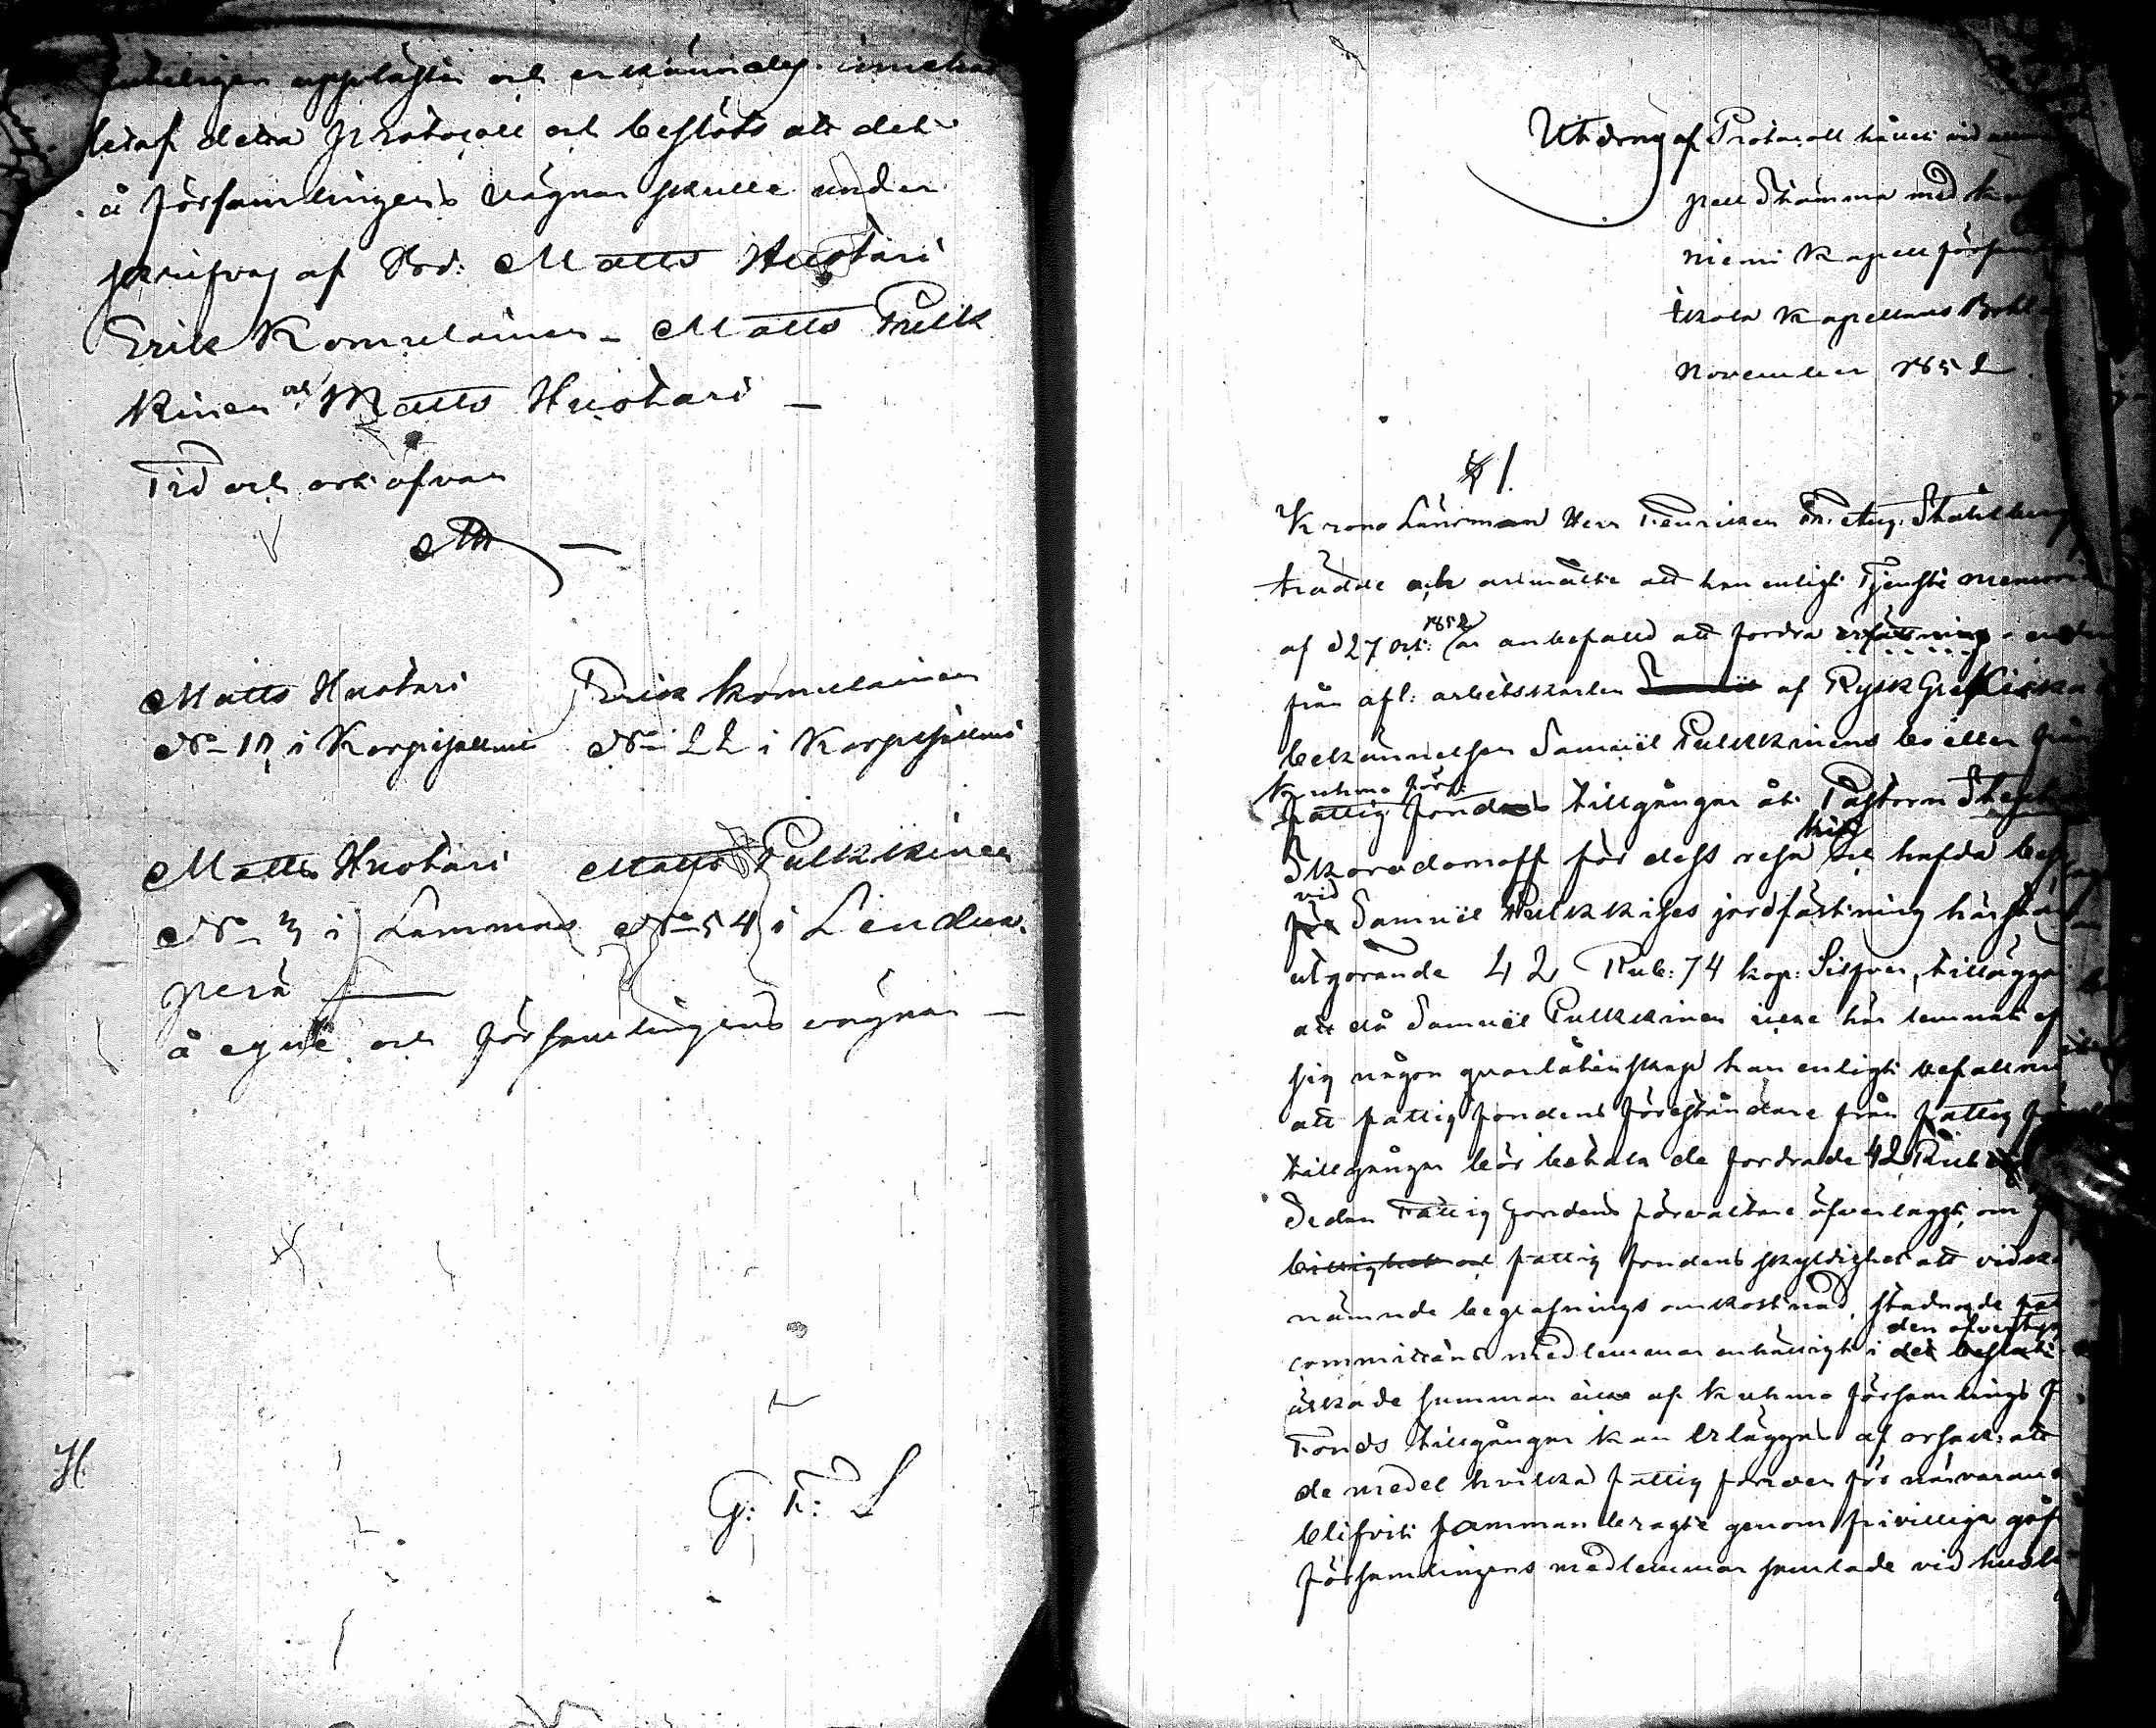 uppläst och erkändes innehål
let af detta protocoll och beslöts att det
å församlingens vägnar skulle under
skrifvas af Bd: Matts Huotari
Erik Komulainen - Matts Pulk
kinen och Matts Huotari -
Tid och ort ofvan
Matts Huotari Erik Komulainen
No 10 i Korpisalmi No 22 i Korpisalmi
Matts Huotari Matts Pulkkinen
No 3 i Lammas No 54 i Lendua
perä
å egne och församlingens vägnar -
H
G: F: S
Utdrag af Protocoll hållit vid
pell Stämma med
niemi Kapellförsam
Kapellans Bohl
November 1852
§ 1.
Krono Länsman Herr Fenriken Fr. Aug. Ståhlberg
trädde och anmälte att han enligt Tjenste memorial
1852
af d 27 Oct: är anbefalld att fordra ersättning
från afl: arbetskarlen Samuel af Rysk Grekiska
bekännelsen Samuel Pulkkinens bo eller från
Kuhmo förs:
fattig fonds tillgångar åt Pastorn Steph
Skorodomoff för dess resa hit och hafda besv
vid
för Samuel Pulkkises jordfästning härstäd
utgörande 42 Rub: 74 kop: Silfver, tilläggan
att då Samuel Pulkkinen icke här lemnat ef
sig någon qvarlåtenskap han enligt befallni
att fattig fondens föreståndare från fattig f
tillgångar bör betala de fordrade 42 Rub
Sedan Fattig fondens förvaltare öfverlaggt, om
billighet och fattig fondens skyldighet att vidk
nämnde begrafnings omkostnad, stadnade fat
den ofvertyg
committéns medlemmar enhälligt i det beslut
äskade summan icke af Kuhmo församlings F
Fonds tillgångar kan erläggas af orsak: att
de medel hvilka fattig fonden för närvarand
blifvit sammanbragte genom frivilliga gåf
församlingens medlemmar samlade vid hus